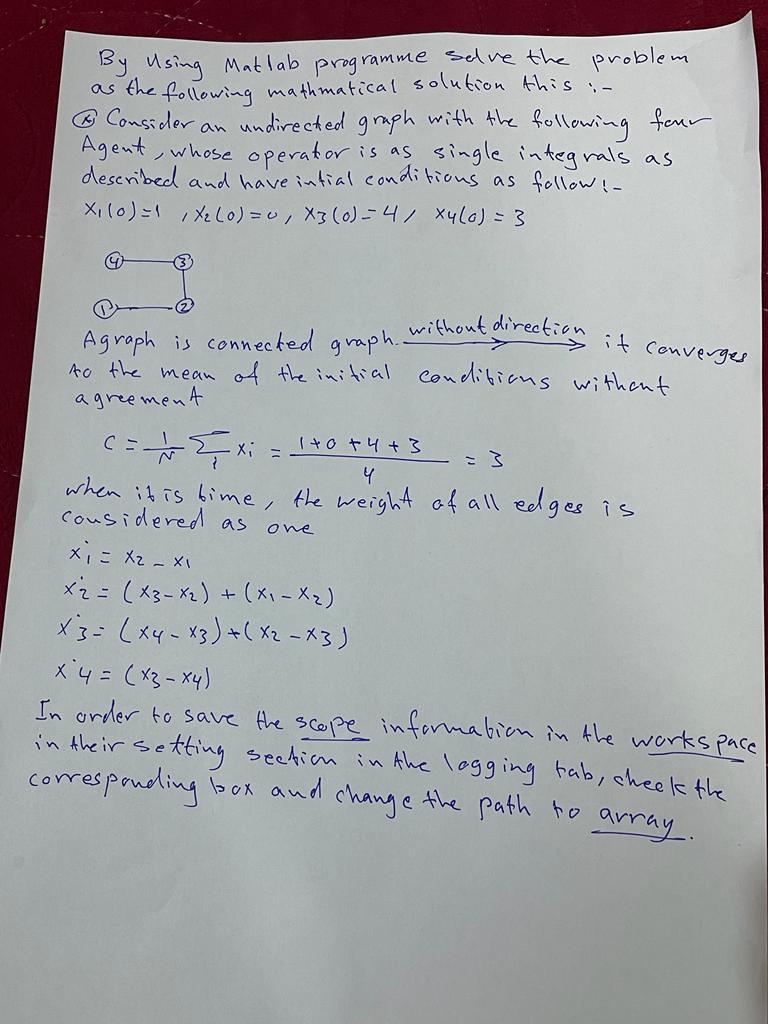 By Using Matlab programme solve the problem
as the following mathmatical solution this :-
Consider an undirected graph with the following four
Agent, whose operator is as single integrals as
described and have intial conditions as follow:-
x1(0)=1 , x2(0)=0, x3(0)=4, x4(0) = 3
4 3
1 2
A graph is connected graph. without direction it converges
to the mean of the initial conditions without
agreement
C = 1/N Σ i xi = 1+0+4+3 / 4 = 3
when it is time, the weight of all edges is
considered as one
ẋ1 = x2 - x1
ẋ2 = (x3-x2) + (x1-x2)
ẋ3 = (x4-x3)+(x2-x3)
ẋ4 = (x3-x4)
In order to save the scope information in the workspace
in their setting section in the logging tab, check the
corresponding box and change the path to array.